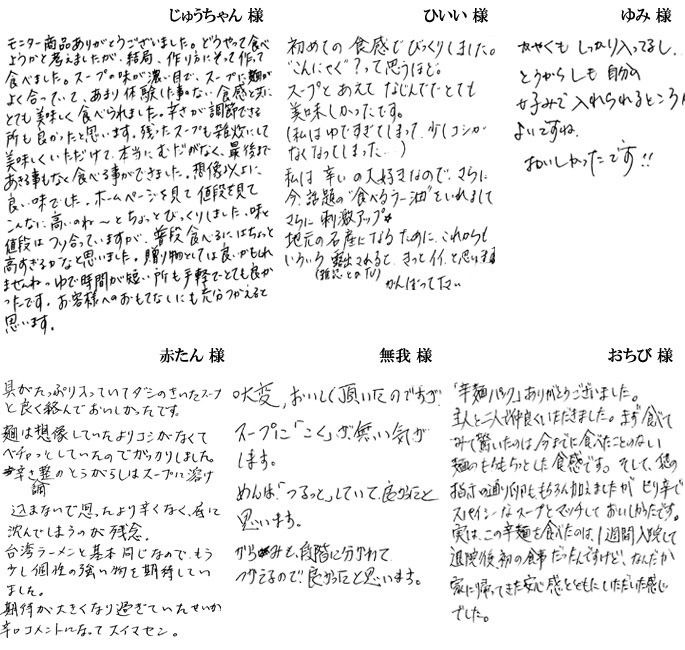 じゅうちゃん 様
モニター商品ありがとうございました。どうやって食べ
ようかと考えましたが、結局、作り方にそって作って
食べました。スープの味が濃い目で、スープに麺が
よく合っていて、あまり体験した事のない食感と共に
とても美味しく食べられました。辛さが調節できる
所も良かったと思います。残ったスープも雑炊にして
美味しくいただけて、本当にむだがなく、最後まで
あきる事もなく食べる事ができました。想像以上に
良い味でした。ホームページを見て値段を見て
こんなに高いのね〜とちょっとびっくりしました。味と
値段はつり合っていますが、普段食べるにはちょっと
高すぎるかなと思いました。贈り物としては良いかもしれ
ませんね。ゆで時間が短い所も手軽でとても良か
ったです。お客様へのおもてなしにも充分つかえると
思います。
ひいい 様
初めての食感でびっくりしました。
"こんにゃく"?って思うほど。
スープとあえてなじんでてとても
美味しかったです。
(私はゆですぎてしまって、少しコシが
なくなってしまった…)
私は辛いの大好きなので、さらに
今、話題の"食べるラー油"をいれまして
さらに刺激アップ☆
地元の名産になるために、これからも
いろいろ露出されると、きっとイイと思います
がんばって下さい
ゆみ 様
もしっかり入ってるし、
とうがらしも自分の
好みで入れられるところが
よいですね。
おいしかったです!!
赤たん 様
具がたっぷり入っていてダシのきいたスープ
と良く絡んでおいしかったです。
麺は想像していたよりコシがなくて
ベチャッとしていたのでがっかりしました。
辛さ調整のとうがらしはスープに溶け
込まないで思ったより辛くなく、底に
沈んでしまうのが残念。
台湾ラーメンと基本同じなので、もう
少し個性の強い物を期待してい
ました。
期待が大きくなり過ぎていたせいか
辛口コメントになってスイマセン。
無我 様
大変、おいしく頂いたのですが、
スープに「こく」が無い気が
します。
めんは、「つるっと」していて、良かったと
思います。
からみも、段階に分かれて
つかえるので、良かったと思います。
おちび 様
「辛麺パック」ありがとうございました。
主人と二人で仲良くいただきました。まず食べて
みて驚いたのは、今までに食べたことのない
麺のもちもちとした食感です。そして、他の
指示の通り卵ももちろん加えましたが、ピリ辛で
スパイシーなスープとマッチしておいしかったです。
実は、この辛麺を食べたのは、1週間入院して
退院後、初の食事だったんですけど、なんだか
家に帰ってきた安心感とともにいただいた感じ
でした。